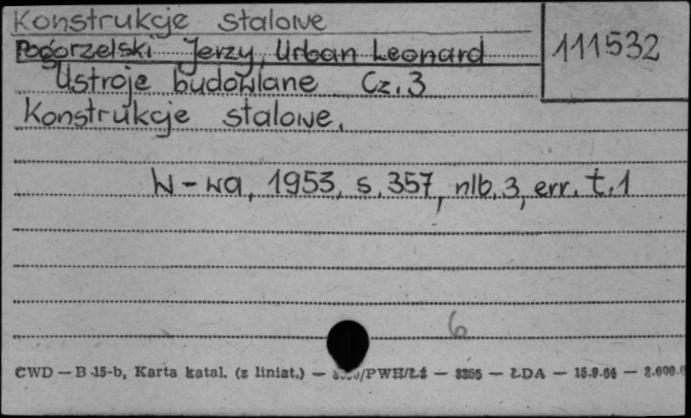 Konstrukcje stalowe
Pogorzelski Jerzy, Urban Leonard
111532
Ustroje budowlane Cz. 3
Konstrukcje stalowe.
W-wa, 1953, s. 357, nlb. 3, err. t. 1
6
CWD — B 15-b, Karta katal. (z liniat.) — /PWH/Łź — 3256 — ŁDA — 15.9.64 — 2.000.0